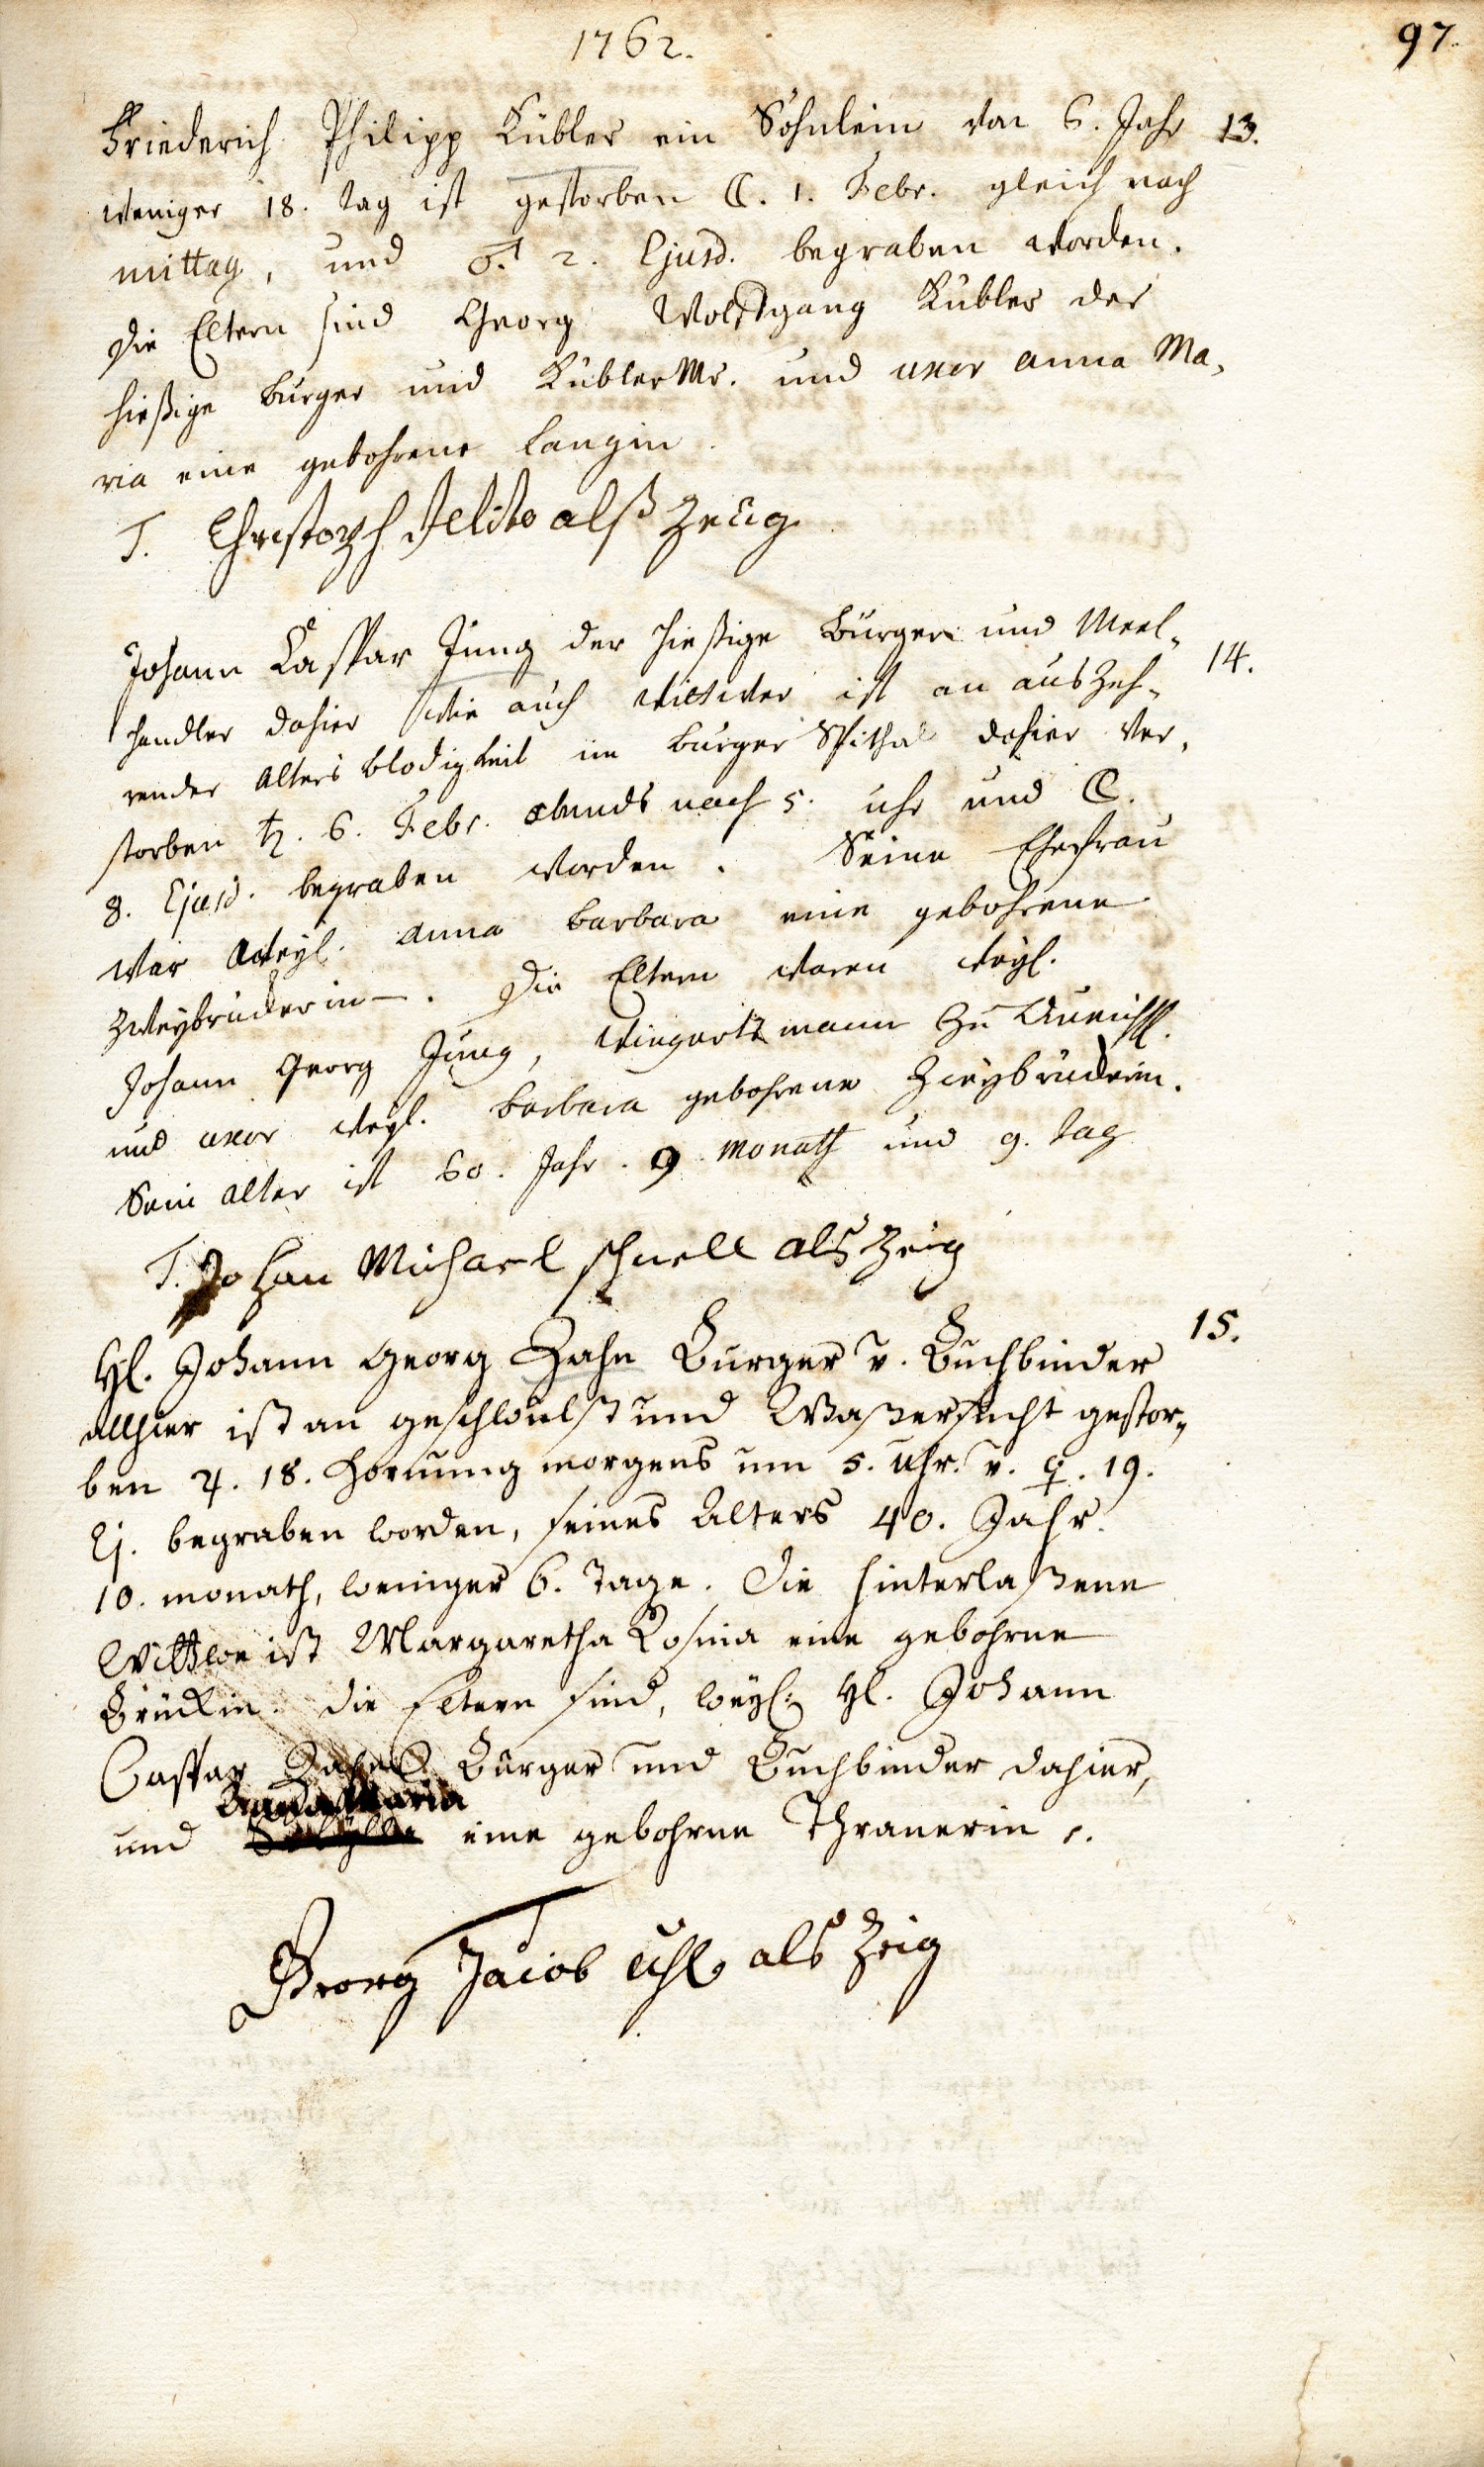 1762.
97.
Friederich Philipp Kübler ein Söhnlein von 6. Jahr 13.
weniger 18. tag ist gestorben ☾. 1. Febr. gleich nach
mittag, und ♂. 2. Ejusd. begraben worden.
Die Eltern sind Georg Wolffgang Kübler der
hießige burger und Kübler Mr. und uxor anna Ma,
ria eine gebohrene Langin.
T. Christoph als Zeüg
Johann Caspar Jung der hießige bürger und Meel- 14.
händler dahier wie auch wittwer ist an auszeh-
render Alters blödigkeit im burger Spithal dahier ver,
storben ♄. 6. Febr. abends nach 5. uhr und ☾.
8. Ejusd. begraben worden. Seine Ehefrau
war weyl. anna barbara eine gebohrene
Zweybrüderin. Die Eltern waren weyl.
Johann Georg Jung, Wingertsmann zu
und uxor weyl. barbara gebohrene Zweybrüderin.
Sein alter ist 60. Jahr. 9 Monath und 9. tag
T. Johan Michael schnell als Zeig
Hl. Johann Georg Zahn Burger v. Buchbinder 15.
allhier ist an geschwulst und Waßersucht gestor-
ben ♃. 18. Hornung morgens um 5. Uhr. v. ♀. 19.
Ej. begraben worden, seines Alters 40. Jahr.
10. monath, weniger 6. Tage. Die hinterlaßene
Wittwe ist Margaretha Rosina eine gebohrne
Brückin. Die Eltern sind, weyl: Hl. Johann
Caspar Zahn Bürger und Buchbinder dahier,
Anna Maria
und eine gebohrne Thranerin.
Georg Jacob Uhl als Zeig